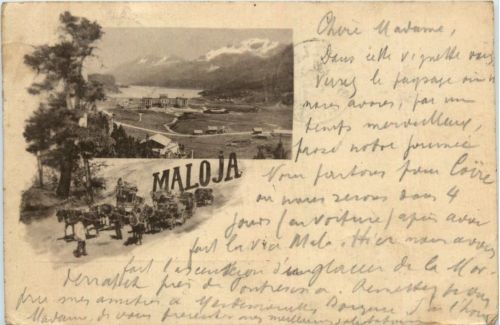 MALOJA
Chère Madame,
Dans cette vignette vous
verrez le paysage où
nous avons, par un
temps merveilleux,
passé notre journée
Nous partons pour Coire
où nous serons dans 4
jours (en voiture) après avoir
fait la Via Mala. Hier nous avons
fait l'ascension d'un glacier de la Mor
près de Pontresina.
mes amitiés à Mesdemoiselles
Madame, de vous présenter mes meilleures salutations